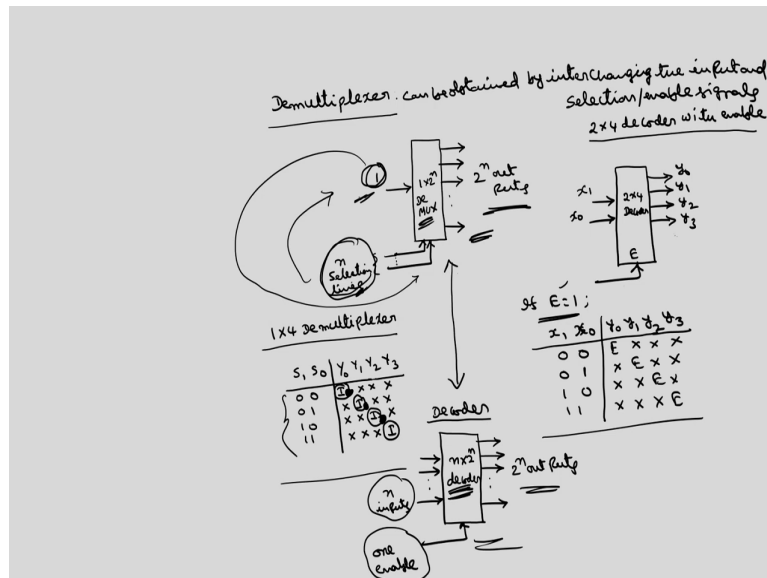 Demultiplexer. can be obtained by interchanging the input and
selection/enable signals
2x4 decoder with enable
1
1x2ⁿ
DE
MUX
2ⁿ out
puts
n
selection
lines
x₁
x₀
2x4
Decoder
E
y₀
y₁
y₂
y₃
If E=1;
x₁ x₀ y₀ y₁ y₂ y₃
0 0 E x x x
0 1 x E x x
1 0 x x E x
1 1 x x x E
1x4 Demultiplexer
S₁ S₀ Y₀ Y₁ Y₂ Y₃
0 0 I x x x
0 1 x I x x
1 0 x x I x
1 1 x x x I
Decoder
nx2ⁿ
decoder
2ⁿ outputs
n
inputs
one
enable